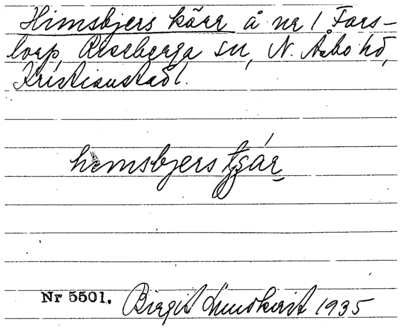 Himsbjers kärr å nr 1 Fars-
torp, Riseberga sn, N. Åsbo hd,
Kristianstad l.
himsbjers
Nr 5501. Birgit Lundkvist 1935